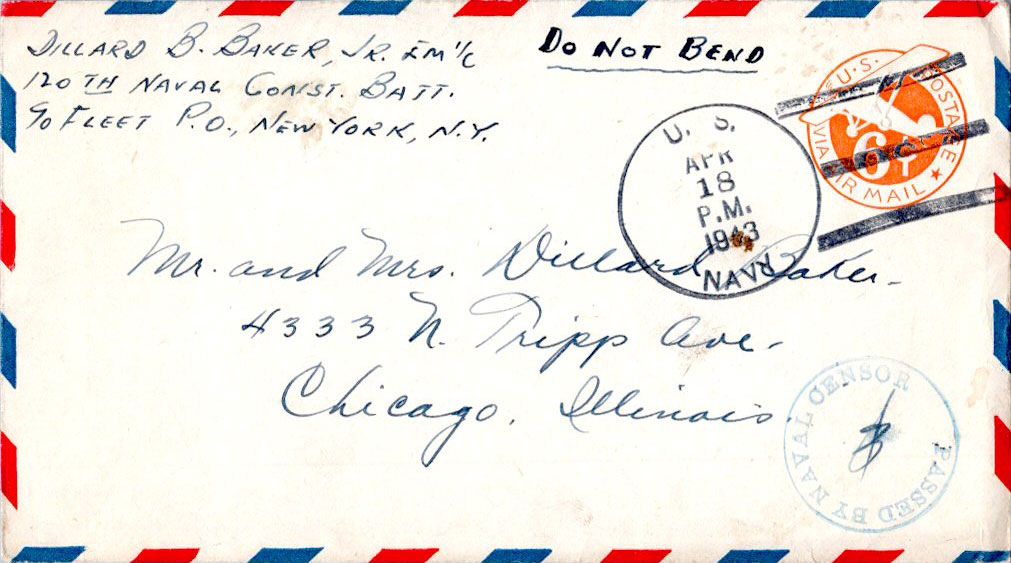 DILLARD B. BAKER, JR. EM 1/C
120TH NAVAL CONST. BATT.
℅ FLEET P.O., NEW YORK, N.Y.
DO NOT BEND
U.S. POSTAGE
VIA AIR MAIL
6¢
U. S.
APR
18
P.M.
1943
NAVY
Mr. and Mrs. Dillard Baker.
4333 N. Tripp Ave.
Chicago, Illinois.
PASSED BY NAVAL CENSOR